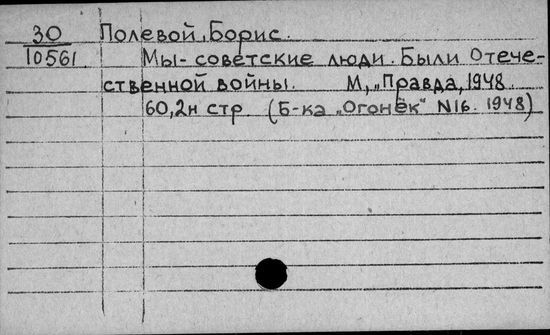 30 Полевой, Борис.
10561 Мы - советские люди. Были Отече-
ственной войны. М, „Правда, 1948.
60,2н стр. (Б-ка „Огонёк" N16. 1948)